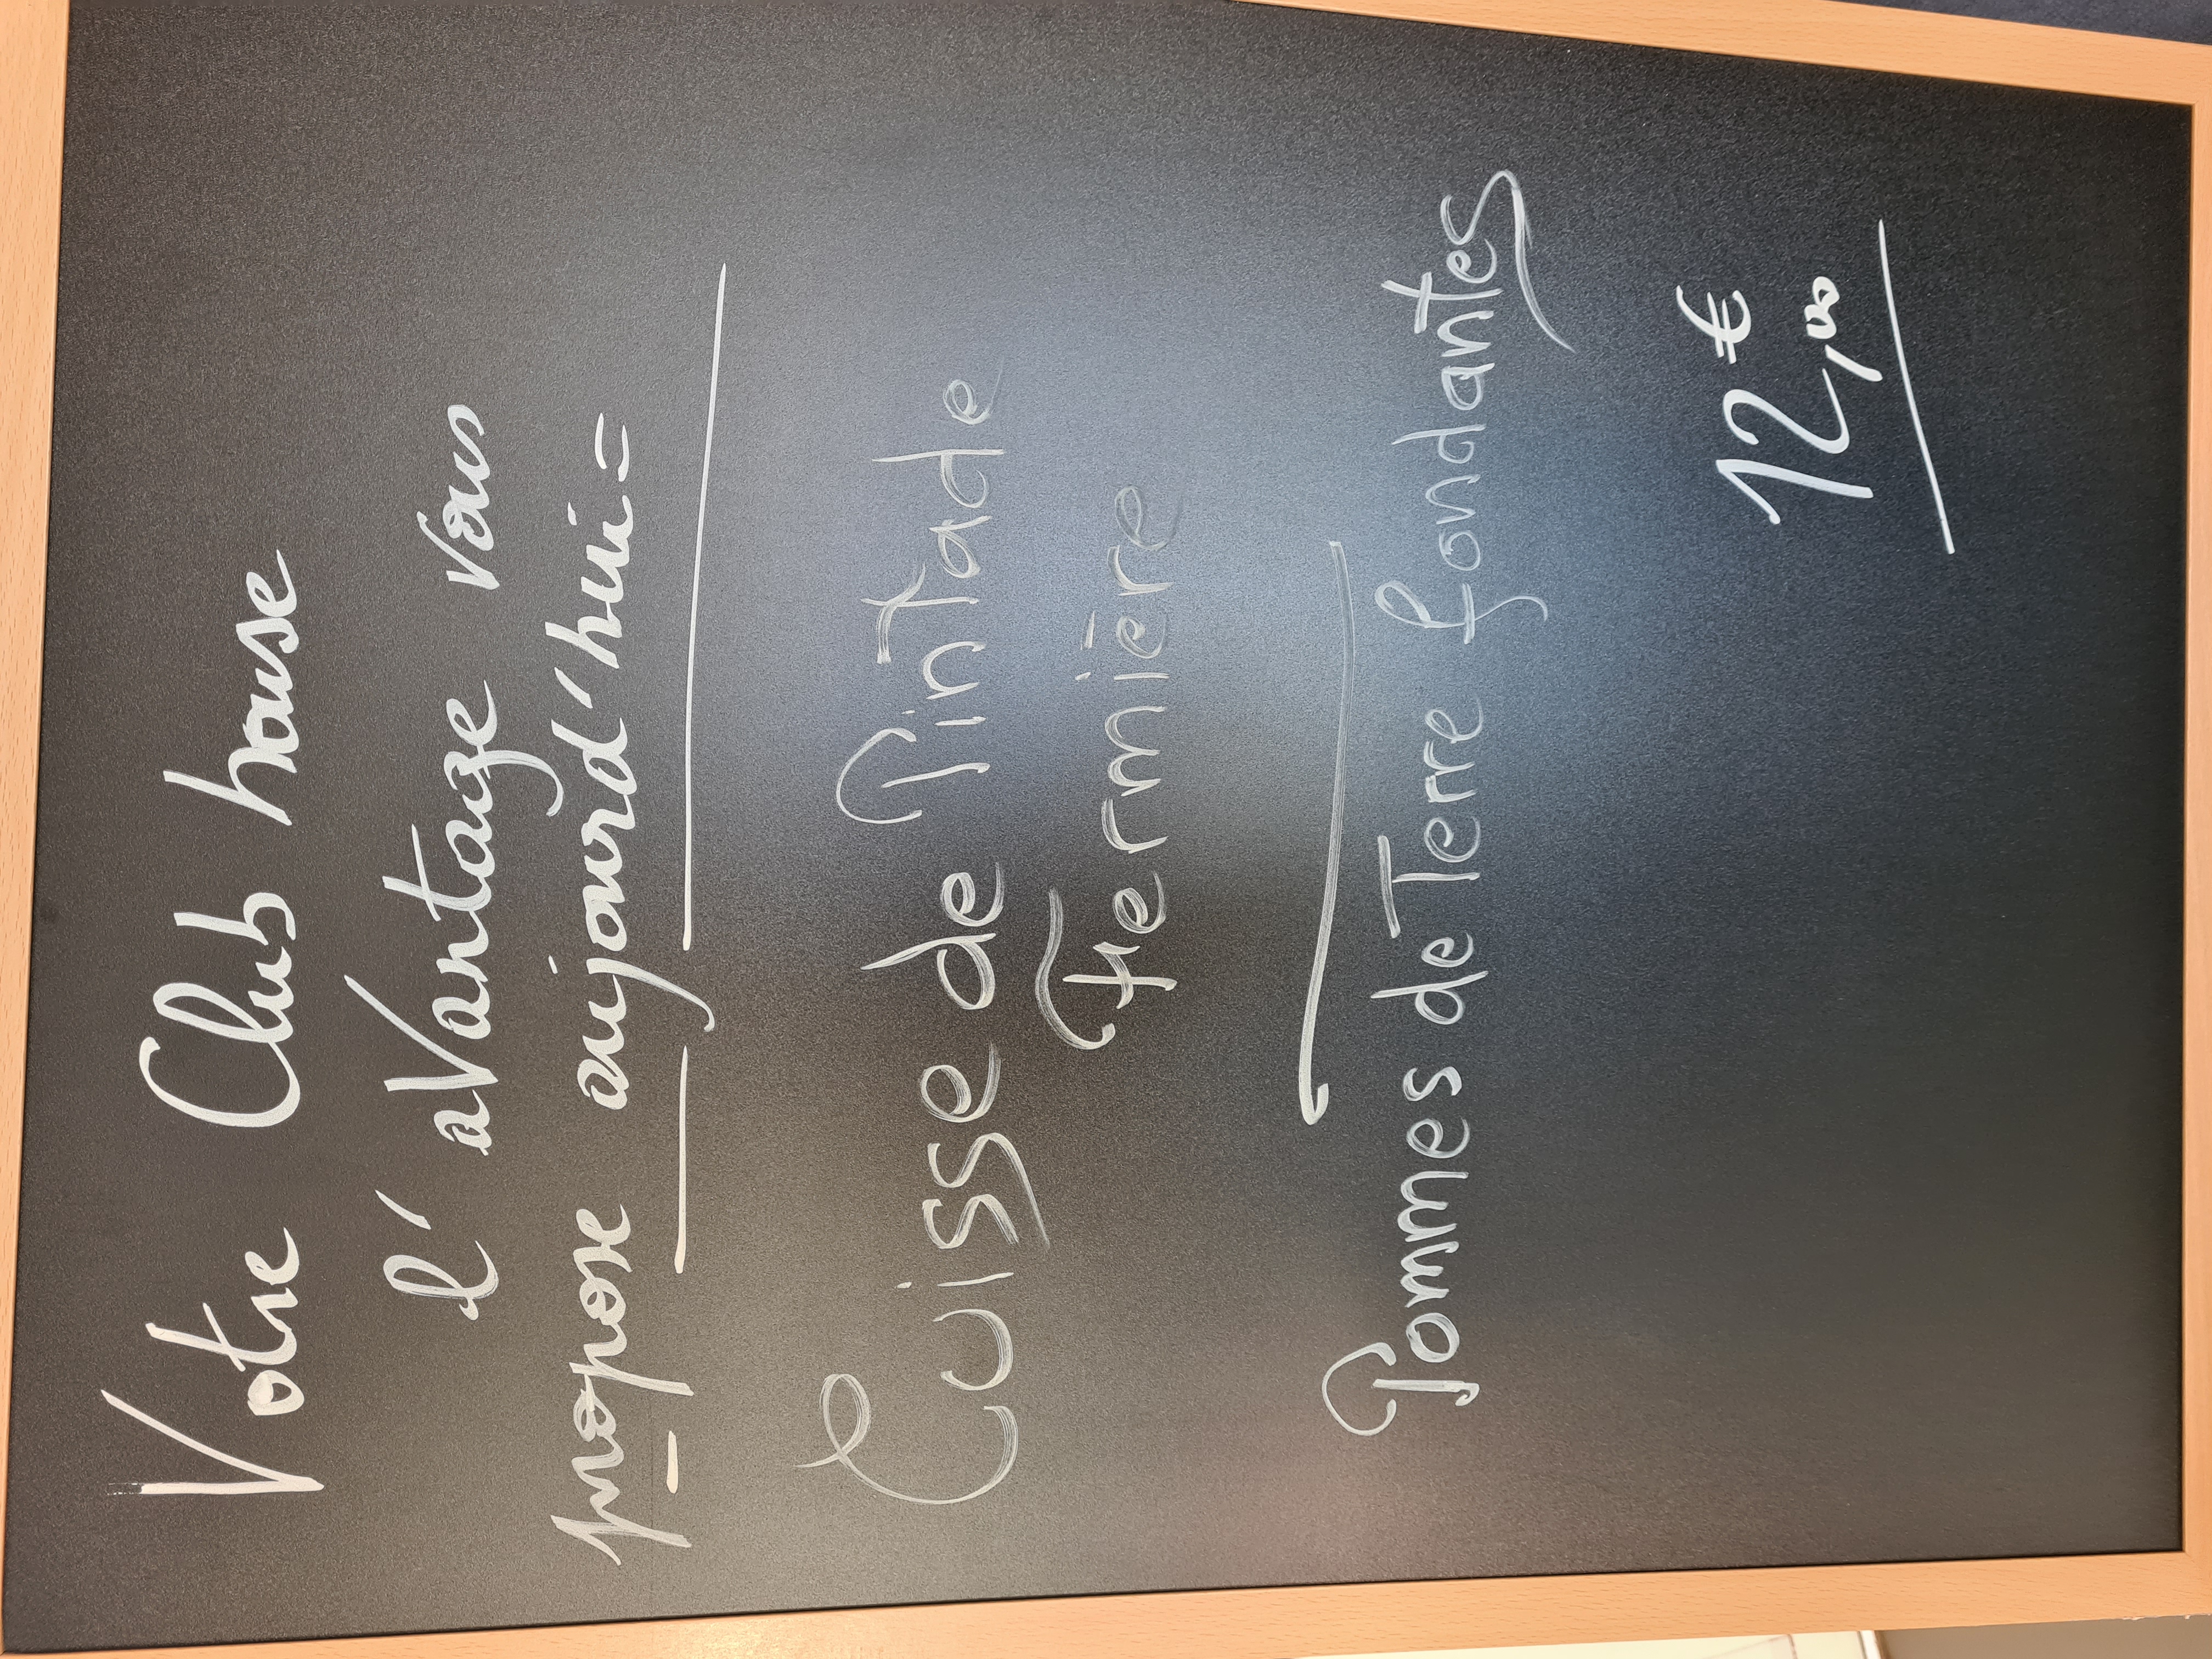 Votre Club house
l'aVantage vous
propose aujourd'hui =
Cuisse de Pintade
Fermière
Pommes de Terre fondantes
12,00 €